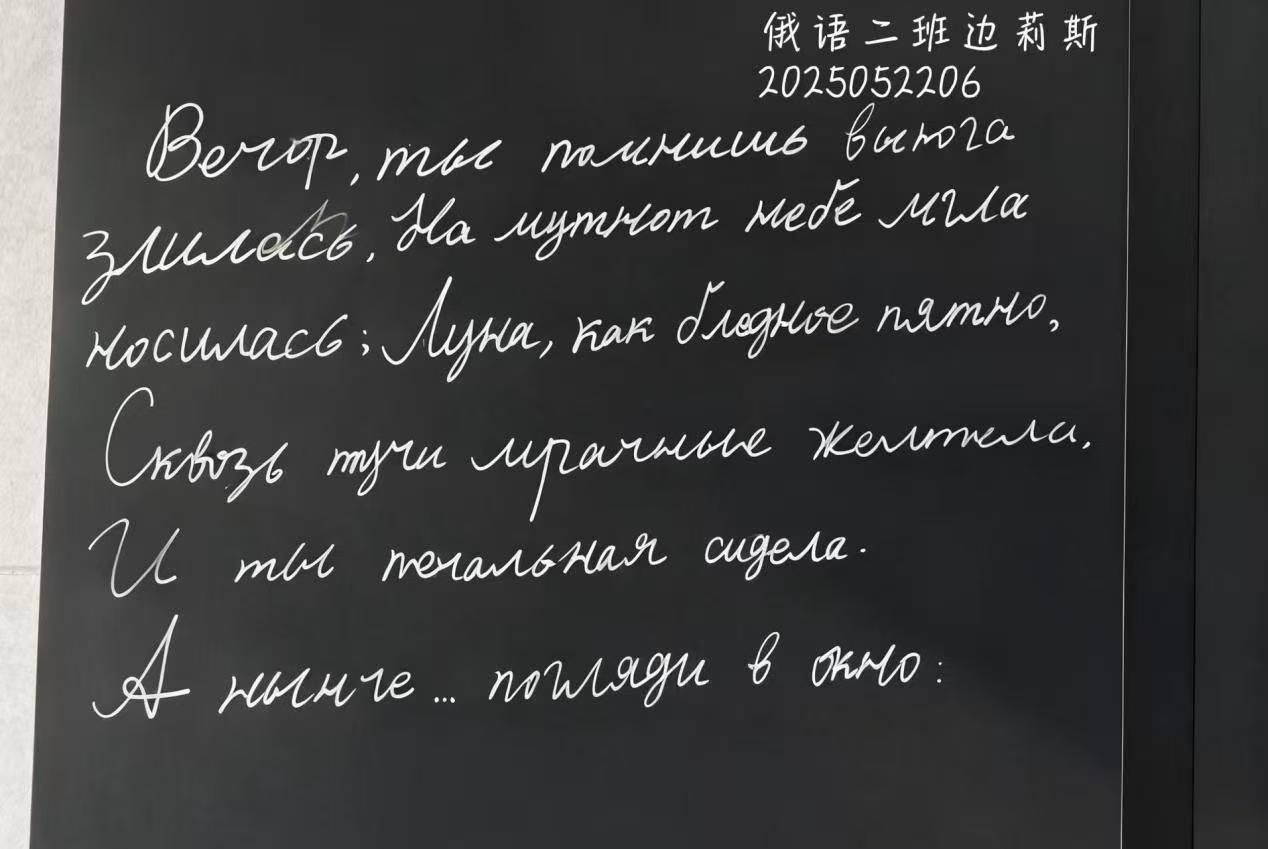 俄语二班边莉斯
2025052206
Вечор, ты помнишь вьюга
злилась, На мутном небе мгла
носилась; Луна, как бледное пятно,
Сквозь тучи мрачные желтела,
И ты печальная сидела.
А нынче... погляди в окно: